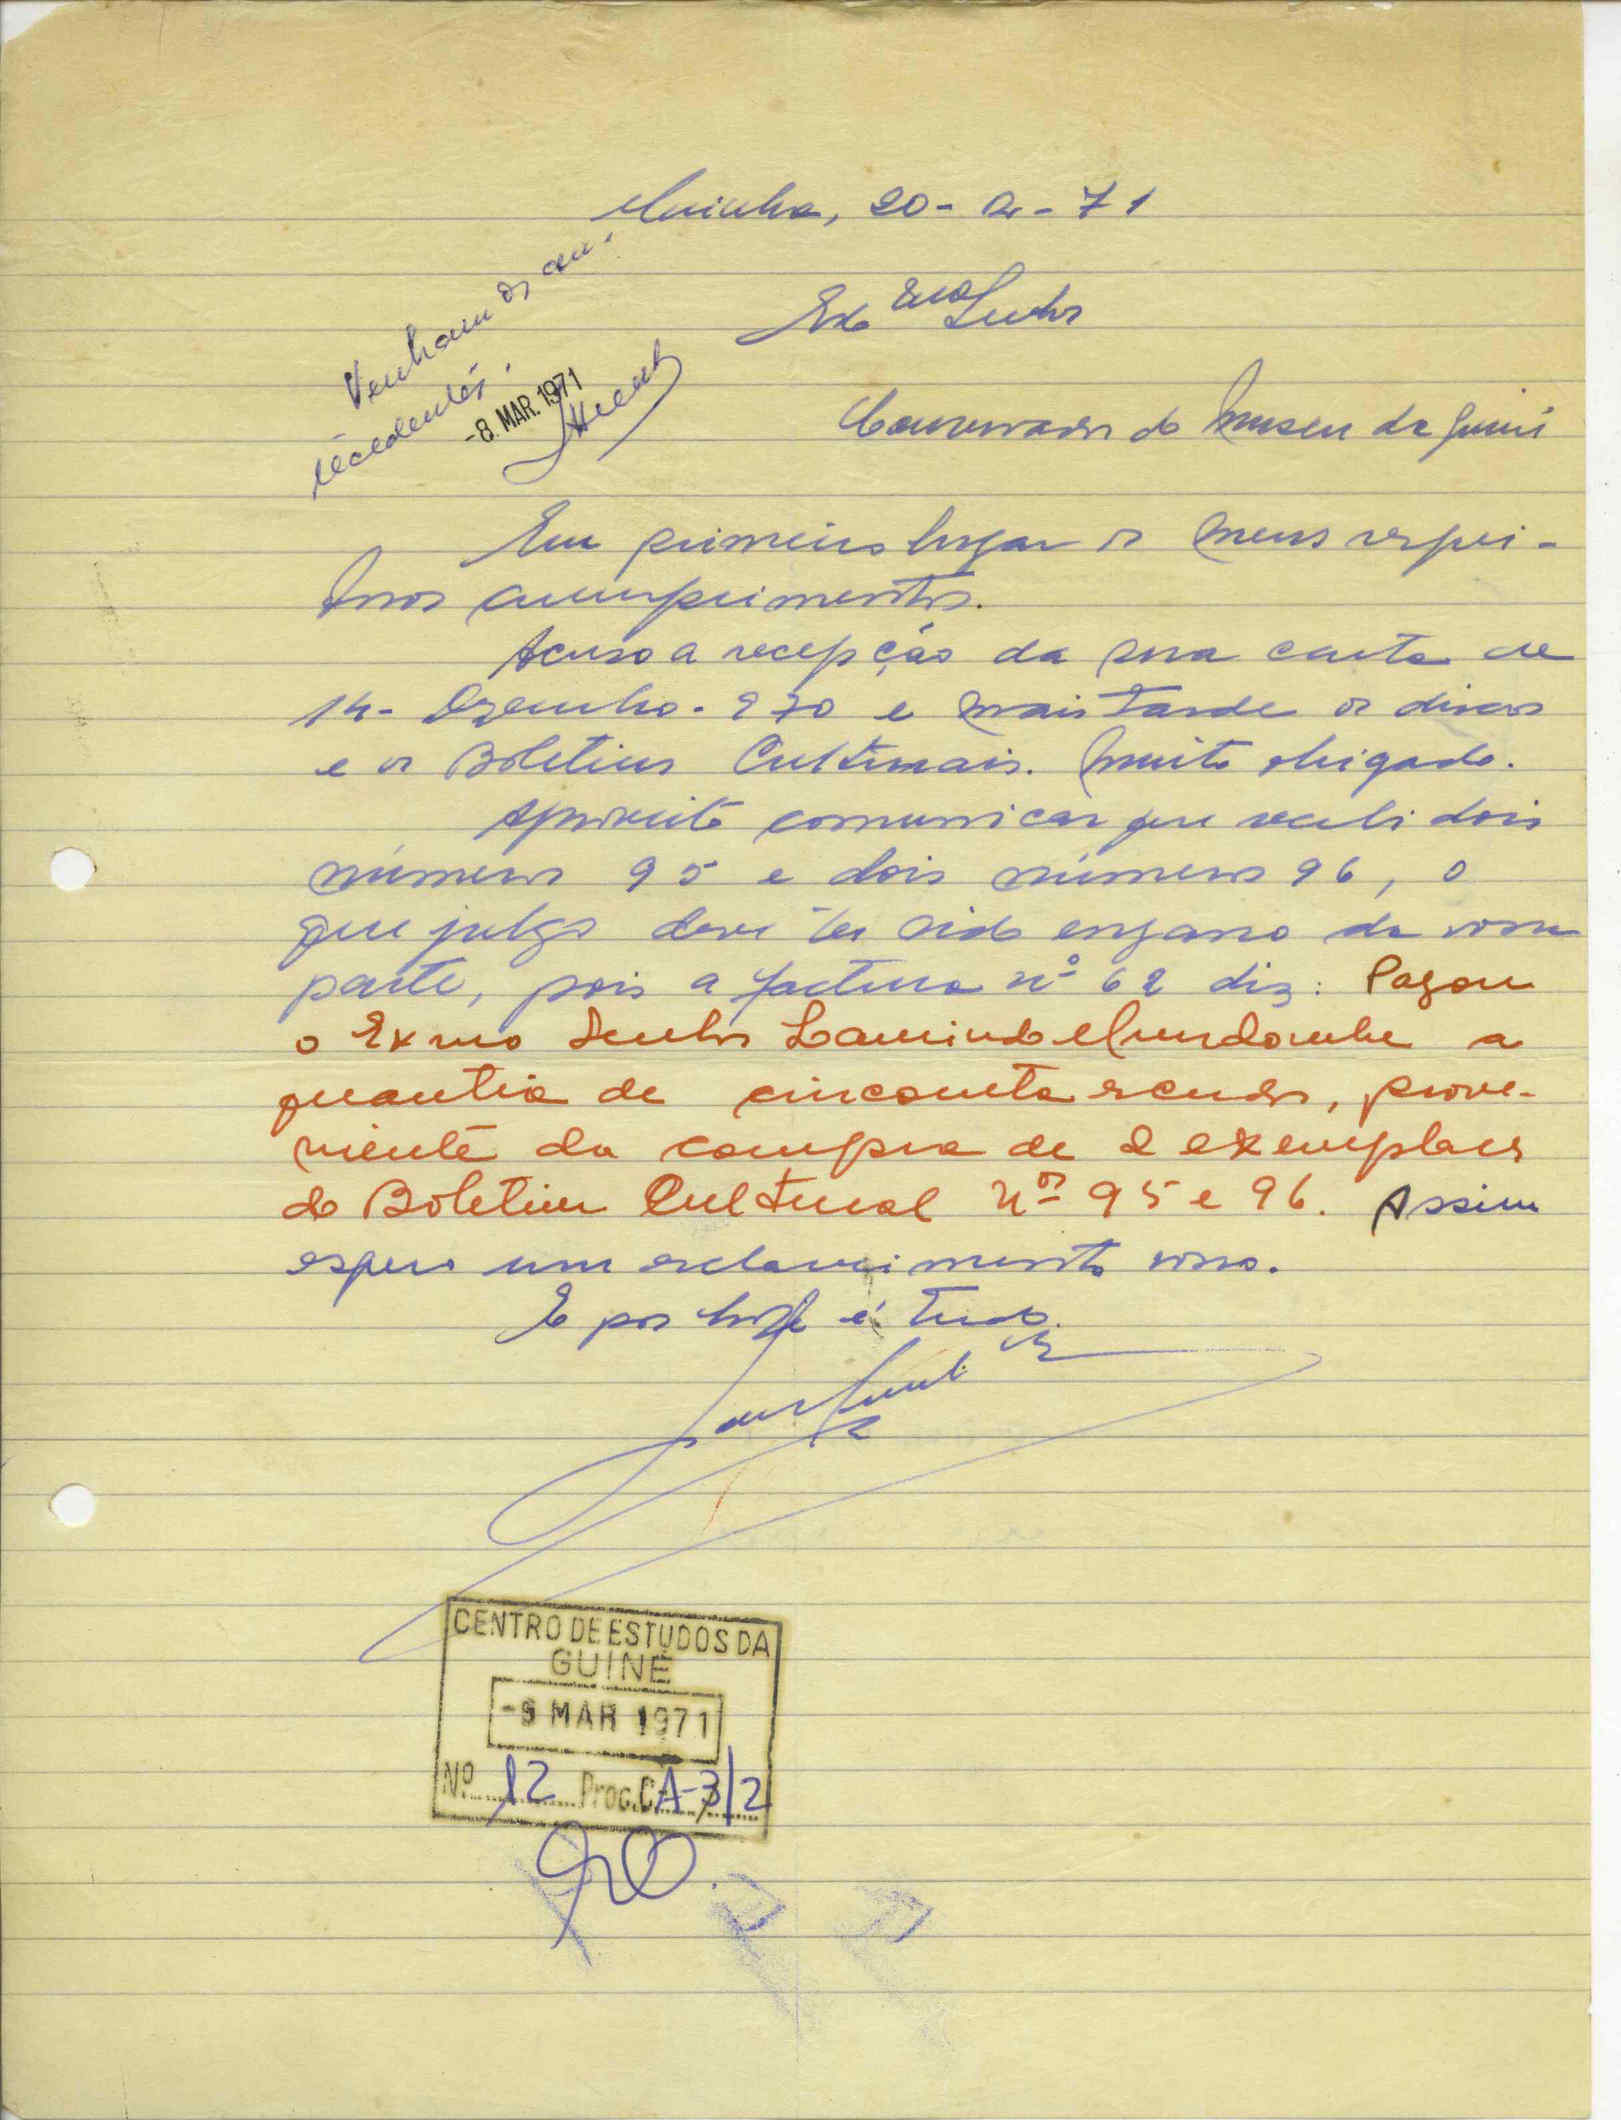 20-2-71
Venham os an-
tecedentes.
-8. MAR. 1971
Exmo Senhor
Conservador do Museu da Guiné
Em primeiro lugar os meus respei-
tosos cumprimentos.
Acuso a recepção da sua carta de
14-Dezembro-970 e mais tarde os discos
e os Boletins Culturais. Muito obrigado.
Aproveito comunicar que recebi dois
números 95 e dois números 96, o
que julgo deve ter sido engano da vossa
parte, pois a factura nº 62 diz: Pagou
o Exmo Senhor a
quantia de cinconta escudos, prove-
niente da compra de 2 exemplares
do Boletim Cultural Nos 95 e 96. Assim
espero um esclarecimento vosso.
E por hoje é tudo.
CENTRO DE ESTUDOS DA
GUINÉ
-9 MAR 1971
Nº 12 Proc. CA-3/2